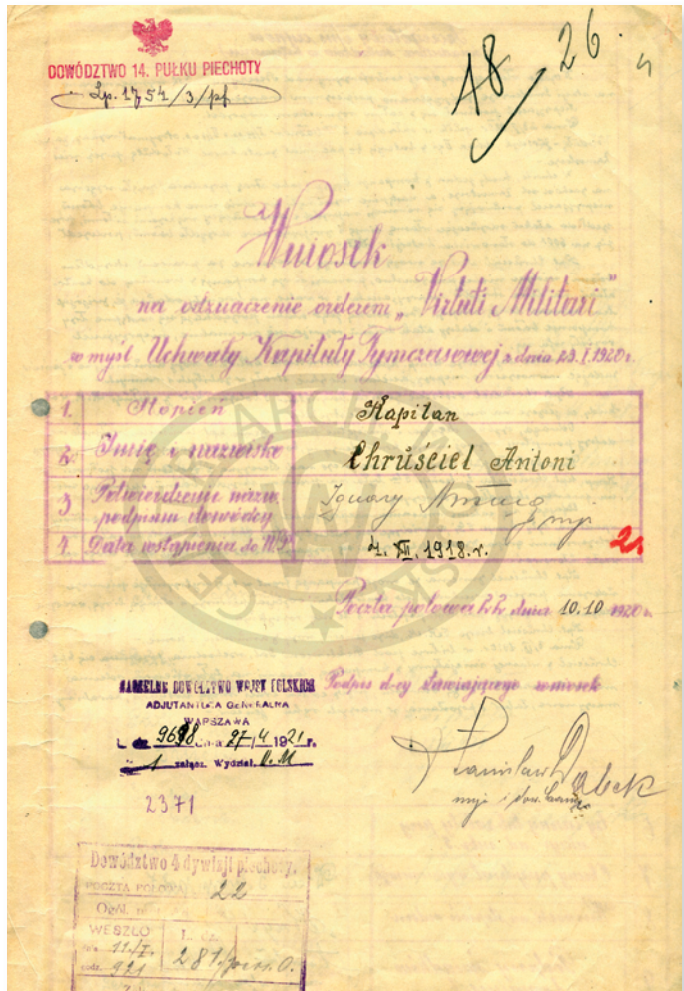 DOWÓDZTWO 14. PUŁKU PIECHOTY
Lp. 1754/3/pf
18 26.
Wniosek
na odznaczenie orderem „Virtuti Militari"
w myśl Uchwały Kapituły Tymczasowej z dnia 23.I.1920 r.
1. Stopień Kapitan
2. Imię i nazwisko Chruściel Antoni
3 Potwierdzenie nazw. podpisem dowódcy Ignacy
4. Data wstąpienia do W.P. 4. XII. 1918. r.
2.
Poczta polowa 22 dnia 10.10 1920 r.
NACZELNE DOWÓDZTWO WOJSK POLSKICH
ADJUTANTURA GENERALNA
WARSZAWA
L. dz. 9698 dnia 27/4 1921 r.
1 załącz. Wydział. V.M
2371
Podpis d-cy stawiającego wniosek
Stanisław Dąbek
Dowództwo 4 dywizji piechoty.
POCZTA POLOWA 22
WESZŁO L. cz.
11/I. 281/pers. O.
godz. 921
CENTRALNE ARCHIWUM WOJSKOWE